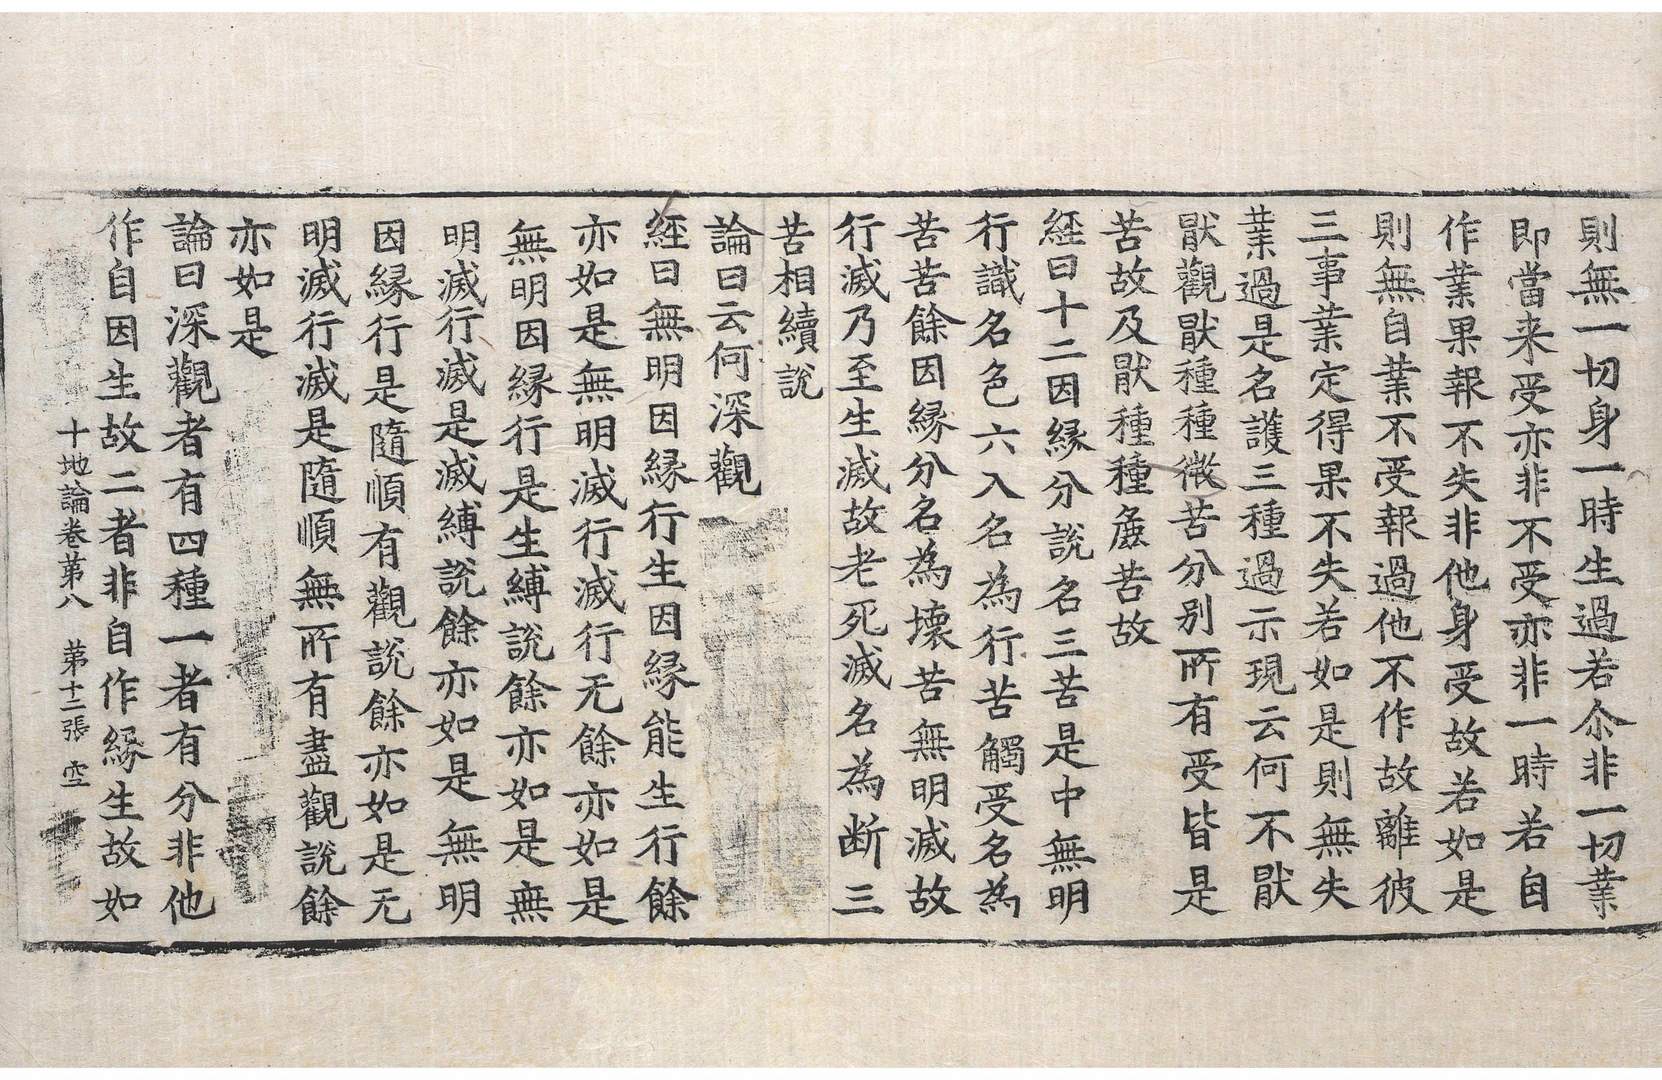 則無一切身一時生過若尒非一切業
即當来受亦非不受亦非一時若自
作業果報不失非他身受故若如是
則無自業不受報過他不作故離彼
三事業定得果不失若如是則無失
業過是名護三種過示現云何不猒
猒觀猒種種微苦分別所有受皆是
苦故及猒種種麁苦故
経曰十二因縁分說名三苦是中無明
行識名色六入名為行苦觸受名為
苦苦餘因縁分名為壞苦無明滅故
行滅乃至生滅故老死滅名為断三
苦相續說
論曰云何深觀
経曰無明因縁行生因縁能生行餘
亦如是無明滅行滅行无餘亦如是
無明因縁行是生縛說餘亦如是無
明滅行滅是滅縛說餘亦如是無明
因縁行是隨順有觀說餘亦如是无
明滅行滅是隨順無所有盡觀說餘
亦如是
論曰深觀者有四種一者有分非他
作自因生故二者非自作縁生故如
十地論卷第八 第十二張 空